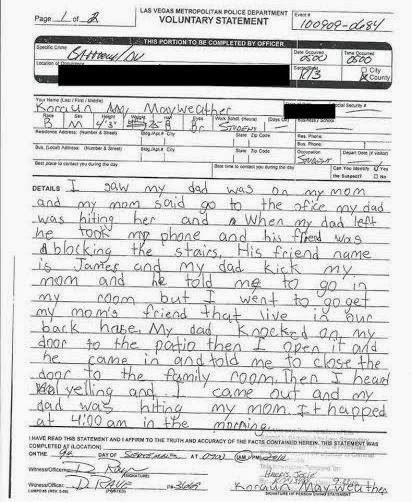 LAS VEGAS METROPOLITAN POLICE DEPARTMENT
Page 1 of 2 VOLUNTARY STATEMENT Event #
100909-0684
THIS PORTION TO BE COMPLETED BY OFFICER
Specific Crime Date Occurred Time Occurred
Battery/DV 0500
Location of Occurrence City
County
Your Name (Last / First / Middle) Social Security #
Koraun Mayweather
Race Sex Height Weight Hair Eyes Work Schdl. (Hours) (Days Off) Business / School
B M 4'3" B Br Student
Residence Address: (Number & Street) Bldg./Apt.# City State Zip Code Res. Phone:
Bus. (Local) Address: (Number & Street) Bldg./Apt.# City State Zip Code Bus. Phone: Occupation Depart Date (if visitor)
Student
Best place to contact you during the day Best time to contact you during the day Can You Identify Yes
the Suspect? No
DETAILS I saw my dad was on my mom
and my mom said go to the ofice my dad
was hiting her and When my dad left
he took my phone and his friend was
blocking the stairs. His friend name
is James and my dad kick my
mom and he told me to go in
my room but I went to go get
my mom's friend that live in our
back house. My dad knocked on my
door to the patio then I open it and
he came in and told me to close the
door to the family room. Then I heard
yelling and I came out and my
dad was hiting my mom. It happed
at 4:00 am in the morning.
I HAVE READ THIS STATEMENT AND I AFFIRM TO THE TRUTH AND ACCURACY OF THE FACTS CONTAINED HEREIN. THIS STATEMENT WAS
COMPLETED AT (LOCATION)
ON THE 9th DAY OF September AT 0700 (AM
Witness/Officer:
(SIGNATURE)
Witness/Officer: D. Kave Koraun Mayweather
(PRINTED) SIGNATURE OF PERSON GIVING STATEMENT